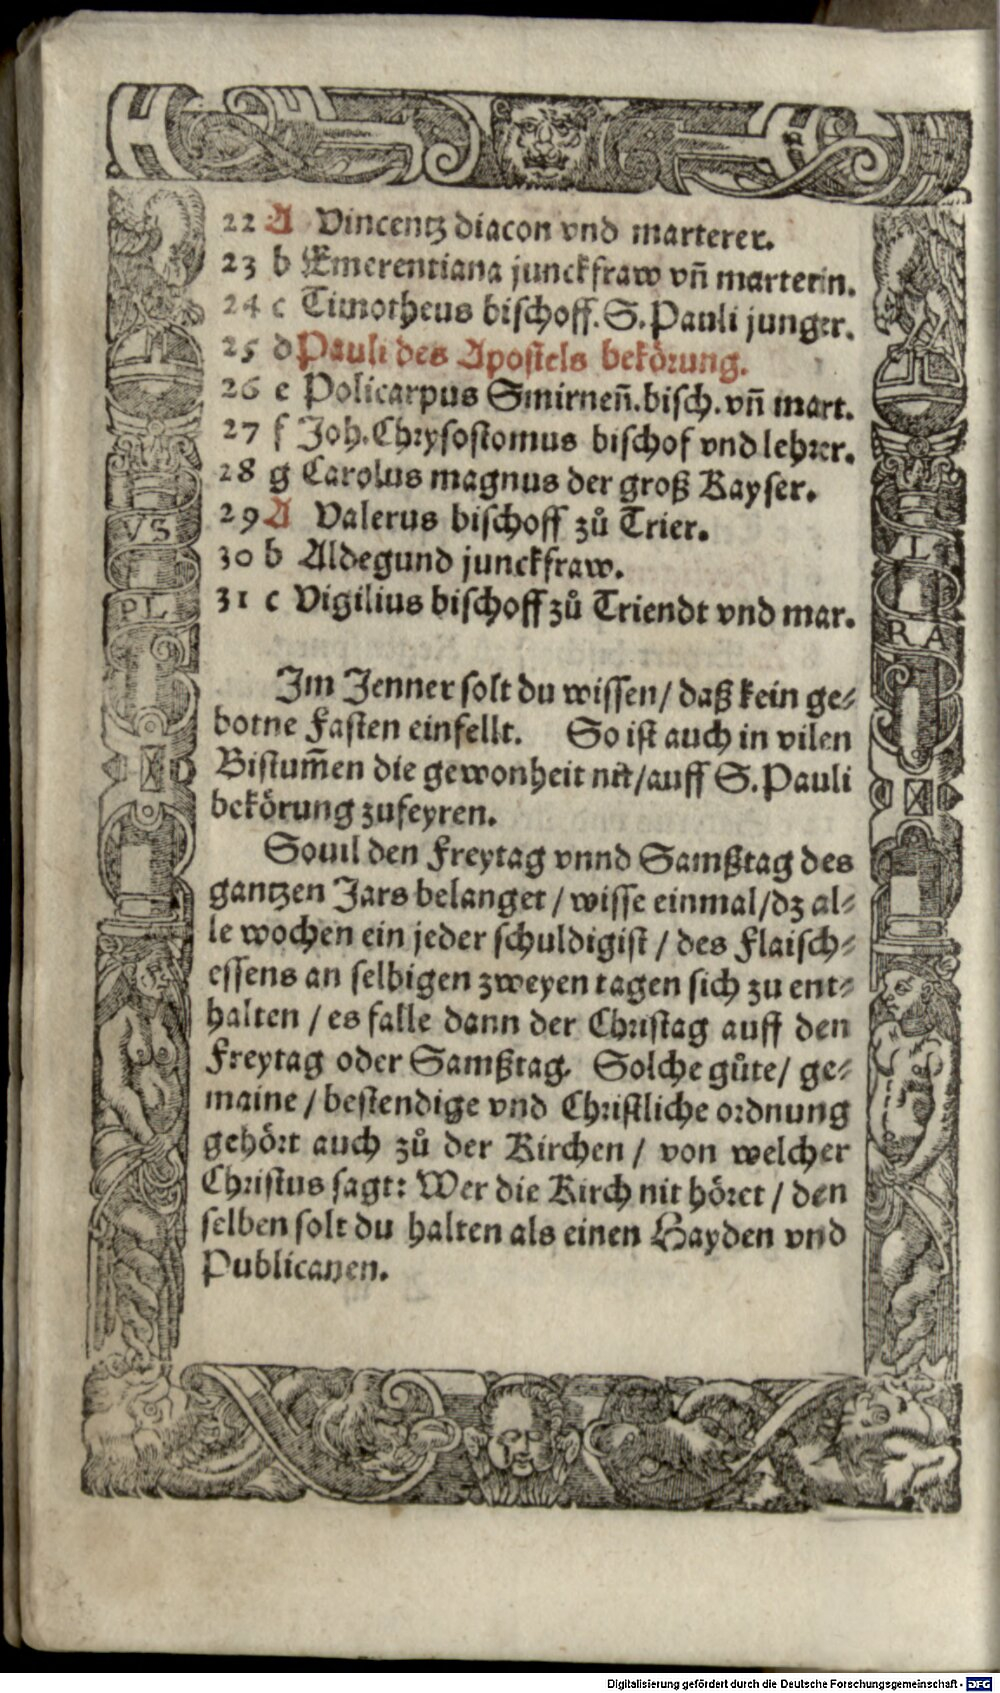 22 A Vincentz diacon vnd marterer.
23 b Emerentiana junckfraw vñ marterin.
24 c Timotheus bischoff. S. Pauli junger.
25 d Pauli des Apostels bekörung.
26 e Policarpus Smirneñ. bisch. vñ mart.
27 f Joh. Chrysostomus bischof vnd lehrer.
28 g Carolus magnus der groß Kayser.
29 A Valerus bischoff zů Trier.
30 b Aldegund junckfraw.
31 c Vigilius bischoff zů Triendt vnd mar.
Im Jenner solt du wissen / daß kein ge⸗
botne Fasten einfellt. So ist auch in vilen
Bistum̃en die gewonheit nit / auff S. Pauli
bekörung zufeyren.
Souil den Freytag vnnd Samßtag des
gantzen Jars belanget / wisse einmal / dz al⸗
le wochen ein jeder schuldig ist / des Flaisch⸗
essens an selbigen zweyen tagen sich zu ent⸗
halten / es falle dann der Christag auff den
Freytag oder Samßtag. Solche gůte / ge⸗
maine / bestendige vnd Christliche ordnung
gehört auch zů der Kirchen / von welcher
Christus sagt: Wer die Kirch nit höret / den
selben solt du halten als einen Hayden vnd
Publicanen.
VS
PL
L
RA
Digitalisierung gefördert durch die Deutsche Forschungsgemeinschaft - DFG